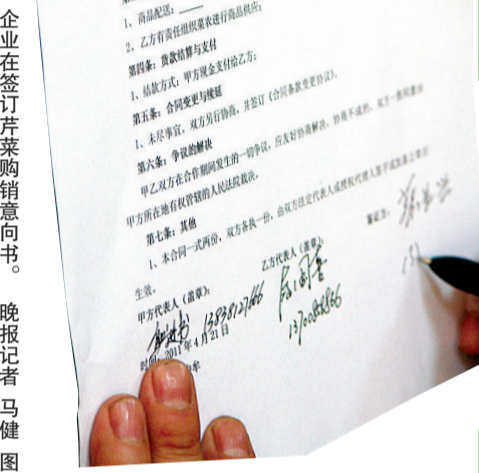 企业在签订芹菜购销意向书。 晚报记者 马健 图
1、商品配送：
2、乙方有责任组织菜农进行商品供应；
第四条：货款结算与支付
1、结款方式：甲方现金支付给乙方；
第五条：合同变更与续延
1、未尽事宜，双方另行协商，并签订《合同条款变更协议》。
第六条：争议的解决
甲乙双方在合作期间发生的一切争议，应友好协商解决，协商不成的，
甲方所在地有权管辖的人民法院裁决。
第七条：其他
1、本合同一式两份，双方各执一份，由双方法定代表人或授权代理人签字或加盖公章后
生效。
甲方代表人（盖章）：
乙方代表人（盖章）：
鉴证方：
13838127666
时间：2011年4月21日